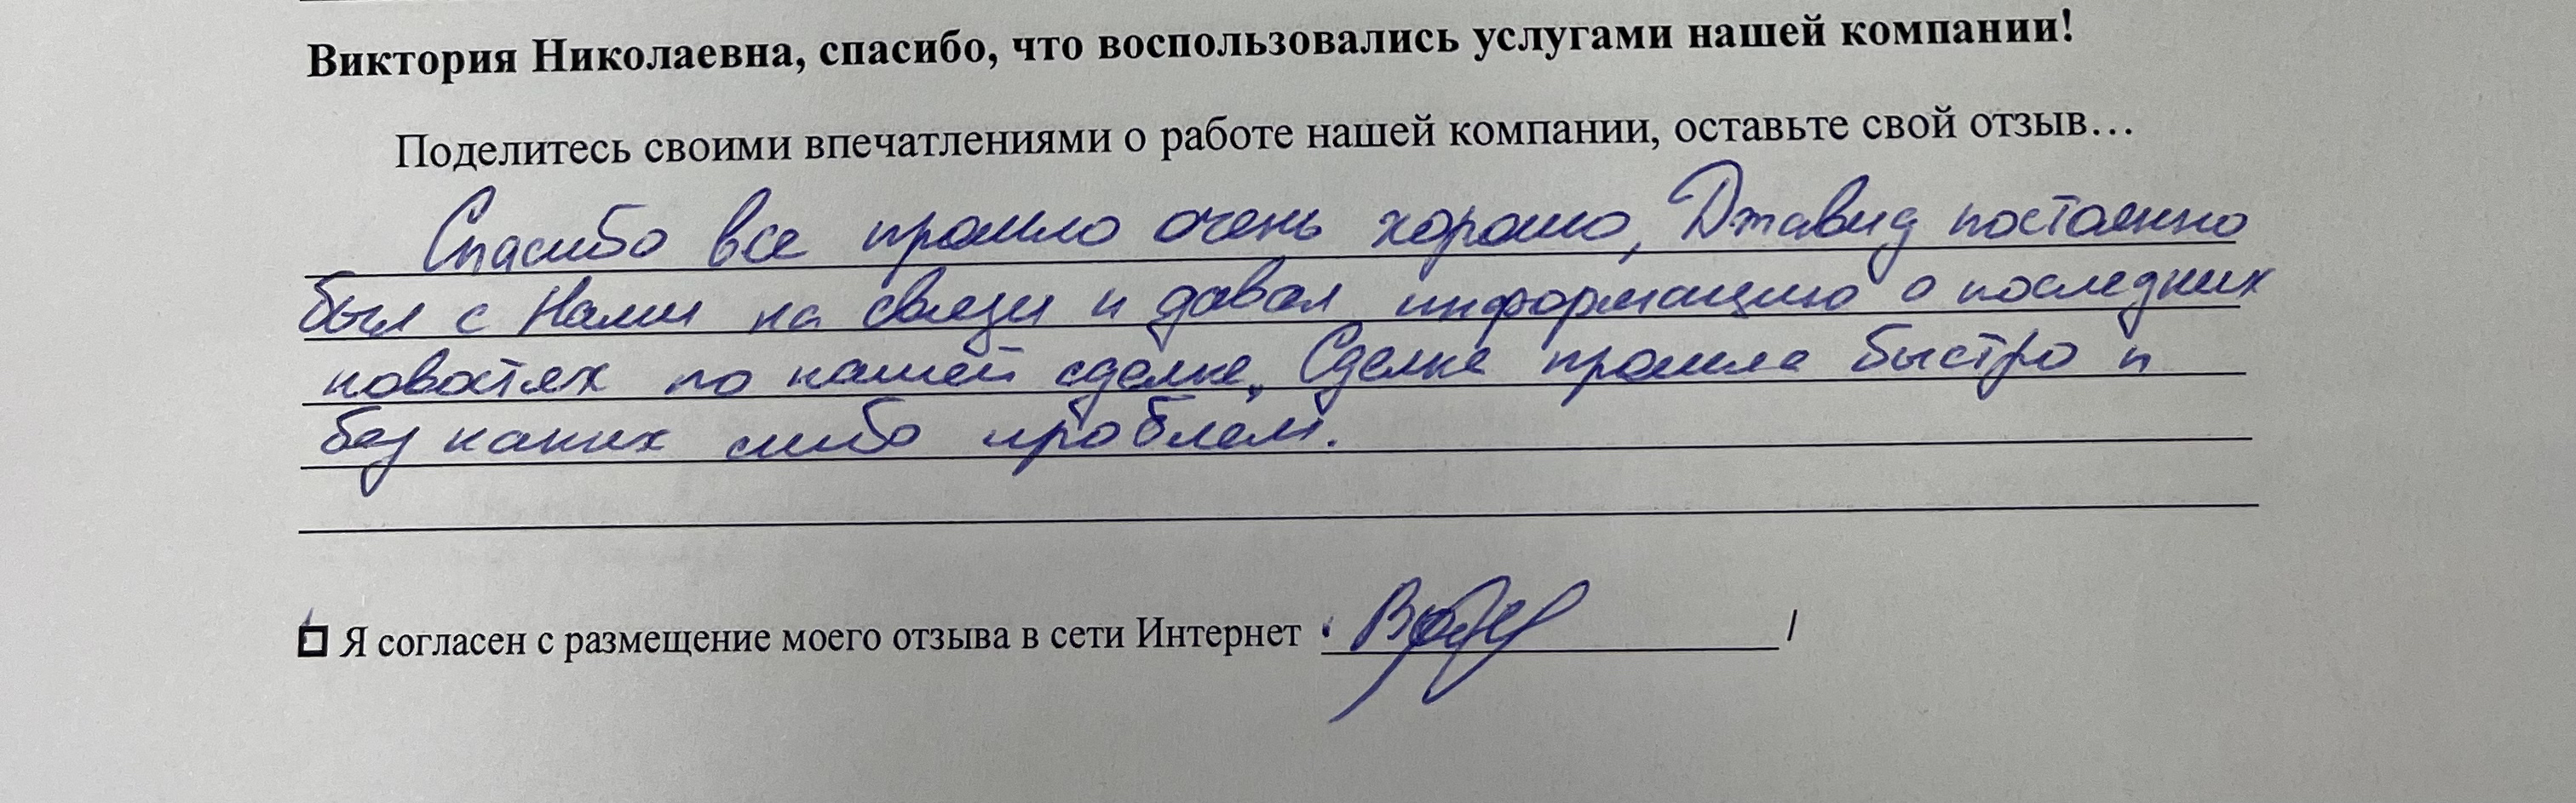 Виктория Николаевна, спасибо, что воспользовались услугами нашей компании!
Поделитесь своими впечатлениями о работе нашей компании, оставьте свой отзыв...
Спасибо все прошло очень хорошо, Джавид постоянно
был с Нами на связи и давал информацию о последних
новостях по нашей сделке. Сделка прошла быстро и
без каких либо проблем.
Я согласен с размещение моего отзыва в сети Интернет /